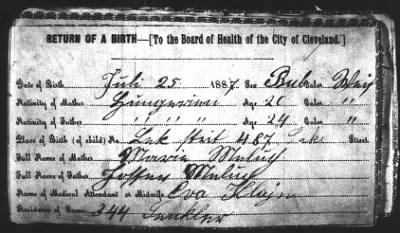 RETURN OF A BIRTH—[To the Board of Health of the City of Cleveland.]
Date of Birth Juli 25 1887 Sex Bub Color Weis
Nativity of Mother Hungerien Age 20 Color "
Nativity of Father " " " " Age 24 Color "
Place of Birth (of child) No Lek street 487 Lake Street
Full Name of Mother Marie
Full Name of Father
Name of Medical Attendant or Midwife Eva Klajn
Residence of Same 344